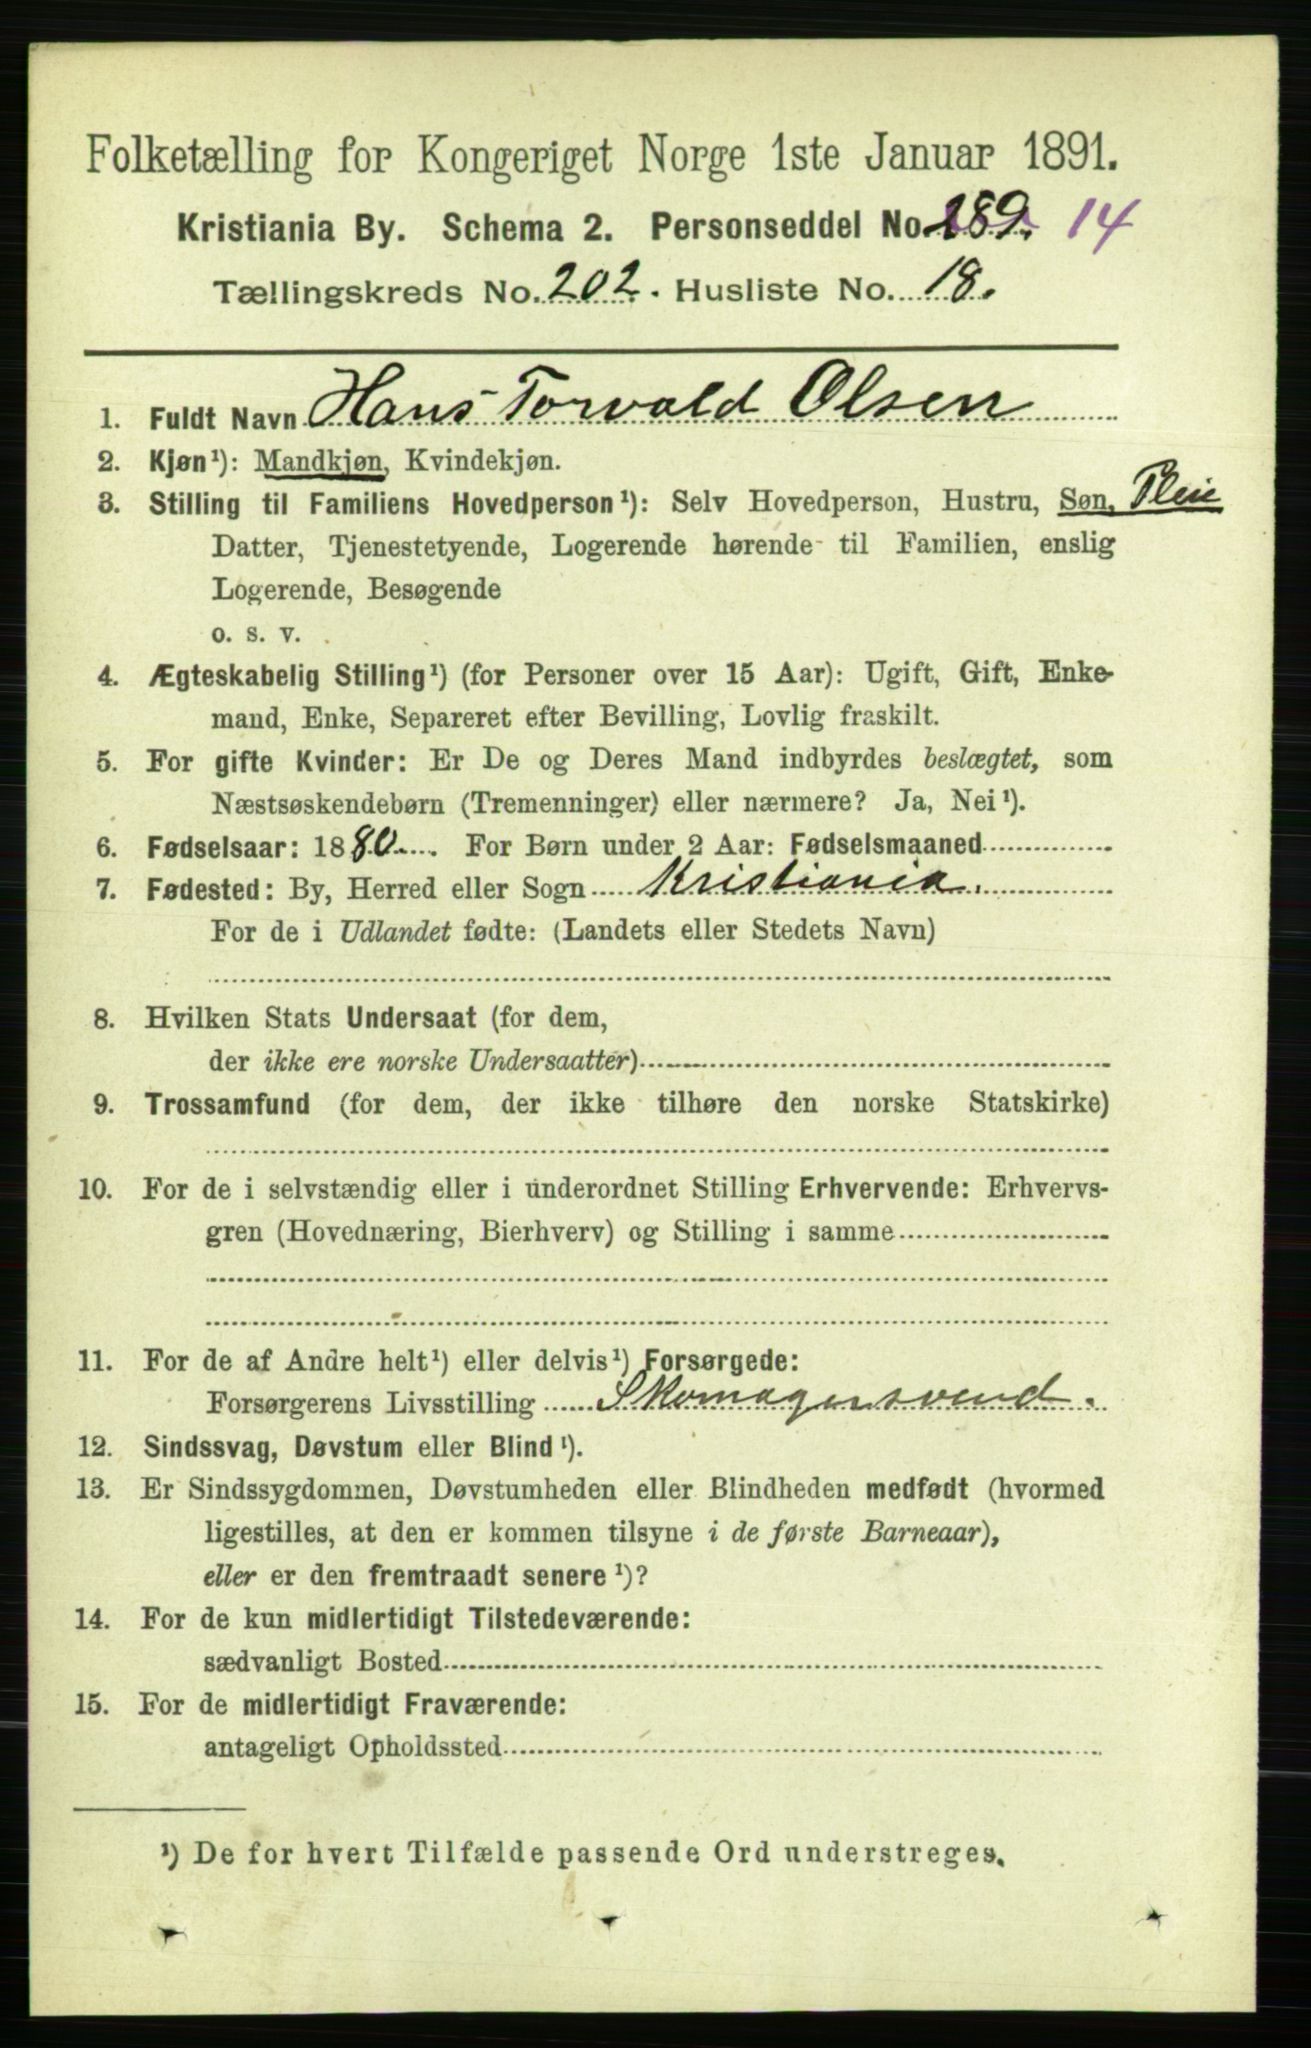 Folketælling for Kongeriget Norge 1ste Januar 1891.
Kristiania By. Schema 2. Personseddel No. 289. 14
Tællingskreds No. 202. Husliste No. 18.
1. Fuldt Navn Hans Torvald Olsen
2. Kjøn¹): Mandkjøn, Kvindekjøn.
3. Stilling til Familiens Hovedperson¹): Selv Hovedperson, Hustru, Søn, Pleie
Datter, Tjenestetyende, Logerende hørende til Familien, enslig
Logerende, Besøgende
o. s. v.
4. Ægteskabelig Stilling¹) (for Personer over 15 Aar): Ugift, Gift, Enke-
mand, Enke, Separeret efter Bevilling, Lovlig fraskilt.
5. For gifte Kvinder: Er De og Deres Mand indbyrdes beslægtet, som
Næstsøskendebørn (Tremenninger) eller nærmere? Ja, Nei¹).
6. Fødselsaar: 1880. For Børn under 2 Aar: Fødselsmaaned
7. Fødested: By, Herred eller Sogn Kristiania.
For de i Udlandet fødte: (Landets eller Stedets Navn)
8. Hvilken Stats Undersaat (for dem,
der ikke ere norske Undersaatter)
9. Trossamfund (for dem, der ikke tilhøre den norske Statskirke)
10. For de i selvstændig eller i underordnet Stilling Erhvervende: Erhvervs-
gren (Hovednæring, Bierhverv) og Stilling i samme
11. For de af Andre helt¹) eller delvis¹) Forsørgede:
Forsørgerens Livsstilling Skomagersvend.
12. Sindssvag, Døvstum eller Blind¹).
13. Er Sindssygdommen, Døvstumheden eller Blindheden medfødt (hvormed
ligestilles, at den er kommen tilsyne i de første Barneaar),
eller er den fremtraadt senere¹)?
14. For de kun midlertidigt Tilstedeværende:
sædvanligt Bosted
15. For de midlertidigt Fraværende:
antageligt Opholdssted
¹) De for hvert Tilfælde passende Ord understreges.